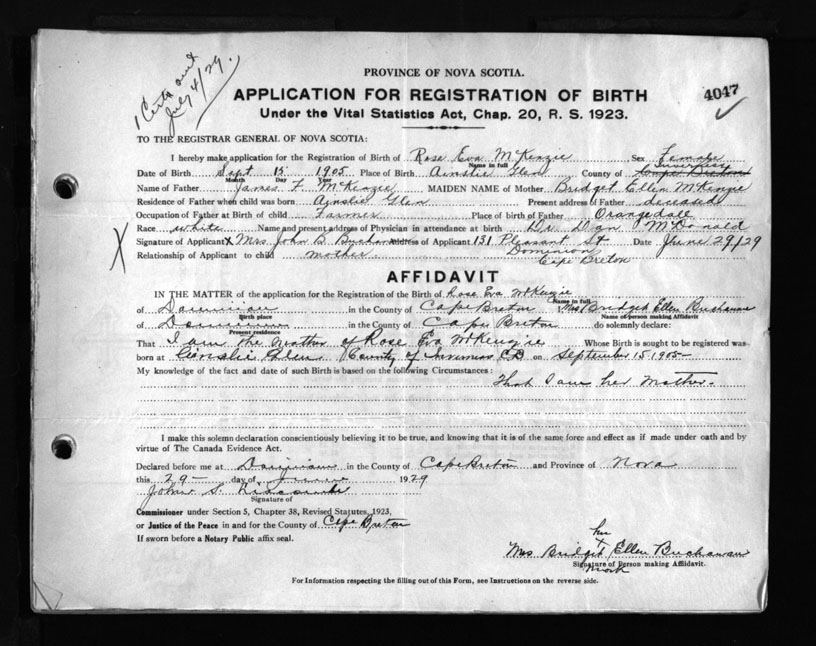 1 Certs out
July 4/29.
PROVINCE OF NOVA SCOTIA.
APPLICATION FOR REGISTRATION OF BIRTH
4047
Under the Vital Statistics Act, Chap. 20, R. S. 1923.
TO THE REGISTRAR GENERAL OF NOVA SCOTIA:
I hereby make application for the Registration of Birth of Rose Eva McKenzie Sex Female
Name in full Inverness
Date of Birth Sept 15 1905 Place of Birth Ainslie Glen County of Cape Breton
Month Day Year
Name of Father James F. McKenzie MAIDEN NAME of Mother Bridget Ellen McKenzie
Residence of Father when child was born Ainslie Glen Present address of Father deceased
Occupation of Father at Birth of child Farmer Place of birth of Father Orangedale
Race white Name and present address of Physician in attendance at birth Dr Dan McDonald
X Signature of Applicant X Mrs John B Buchanan Address of Applicant 131 Pleasant St Date June 29/29
Relationship of Applicant to child mother Dominion
Cape Breton
AFFIDAVIT
IN THE MATTER of the application for the Registration of the Birth of Rose Eva McKenzie
Name in full
of Dominion in the County of Cape Breton Mrs Bridget Ellen Buchanan
Birth place Name of person making Affidavit
of Dominion in the County of Cape Breton do solemnly declare:
Present residence
That I am the Mother of Rose Eva McKenzie Whose Birth is sought to be registered was
born at Ainslie Glen County of Inverness CB on September 15 1905-
My knowledge of the fact and date of such Birth is based on the following Circumstances:
That I am her Mother.
I make this solemn declaration conscientiously believing it to be true, and knowing that it is of the same force and effect as if made under oath and by
virtue of The Canada Evidence Act.
Declared before me at Dominion in the County of Cape Breton and Province of Nova
this 29- day of June 1929
John S.
Signature of
Commissioner under Section 5, Chapter 38, Revised Statutes, 1923,
or Justice of the Peace in and for the County of Cape Breton
If sworn before a Notary Public affix seal.
her
X
Mrs Bridget Ellen Buchanan
Signature of Person making Affidavit.
Mark
For Information respecting the filling out of this Form, see Instructions on the reverse side.